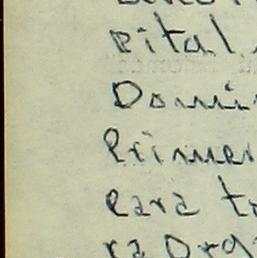 pital
Domin
Primer
para t
ra Org